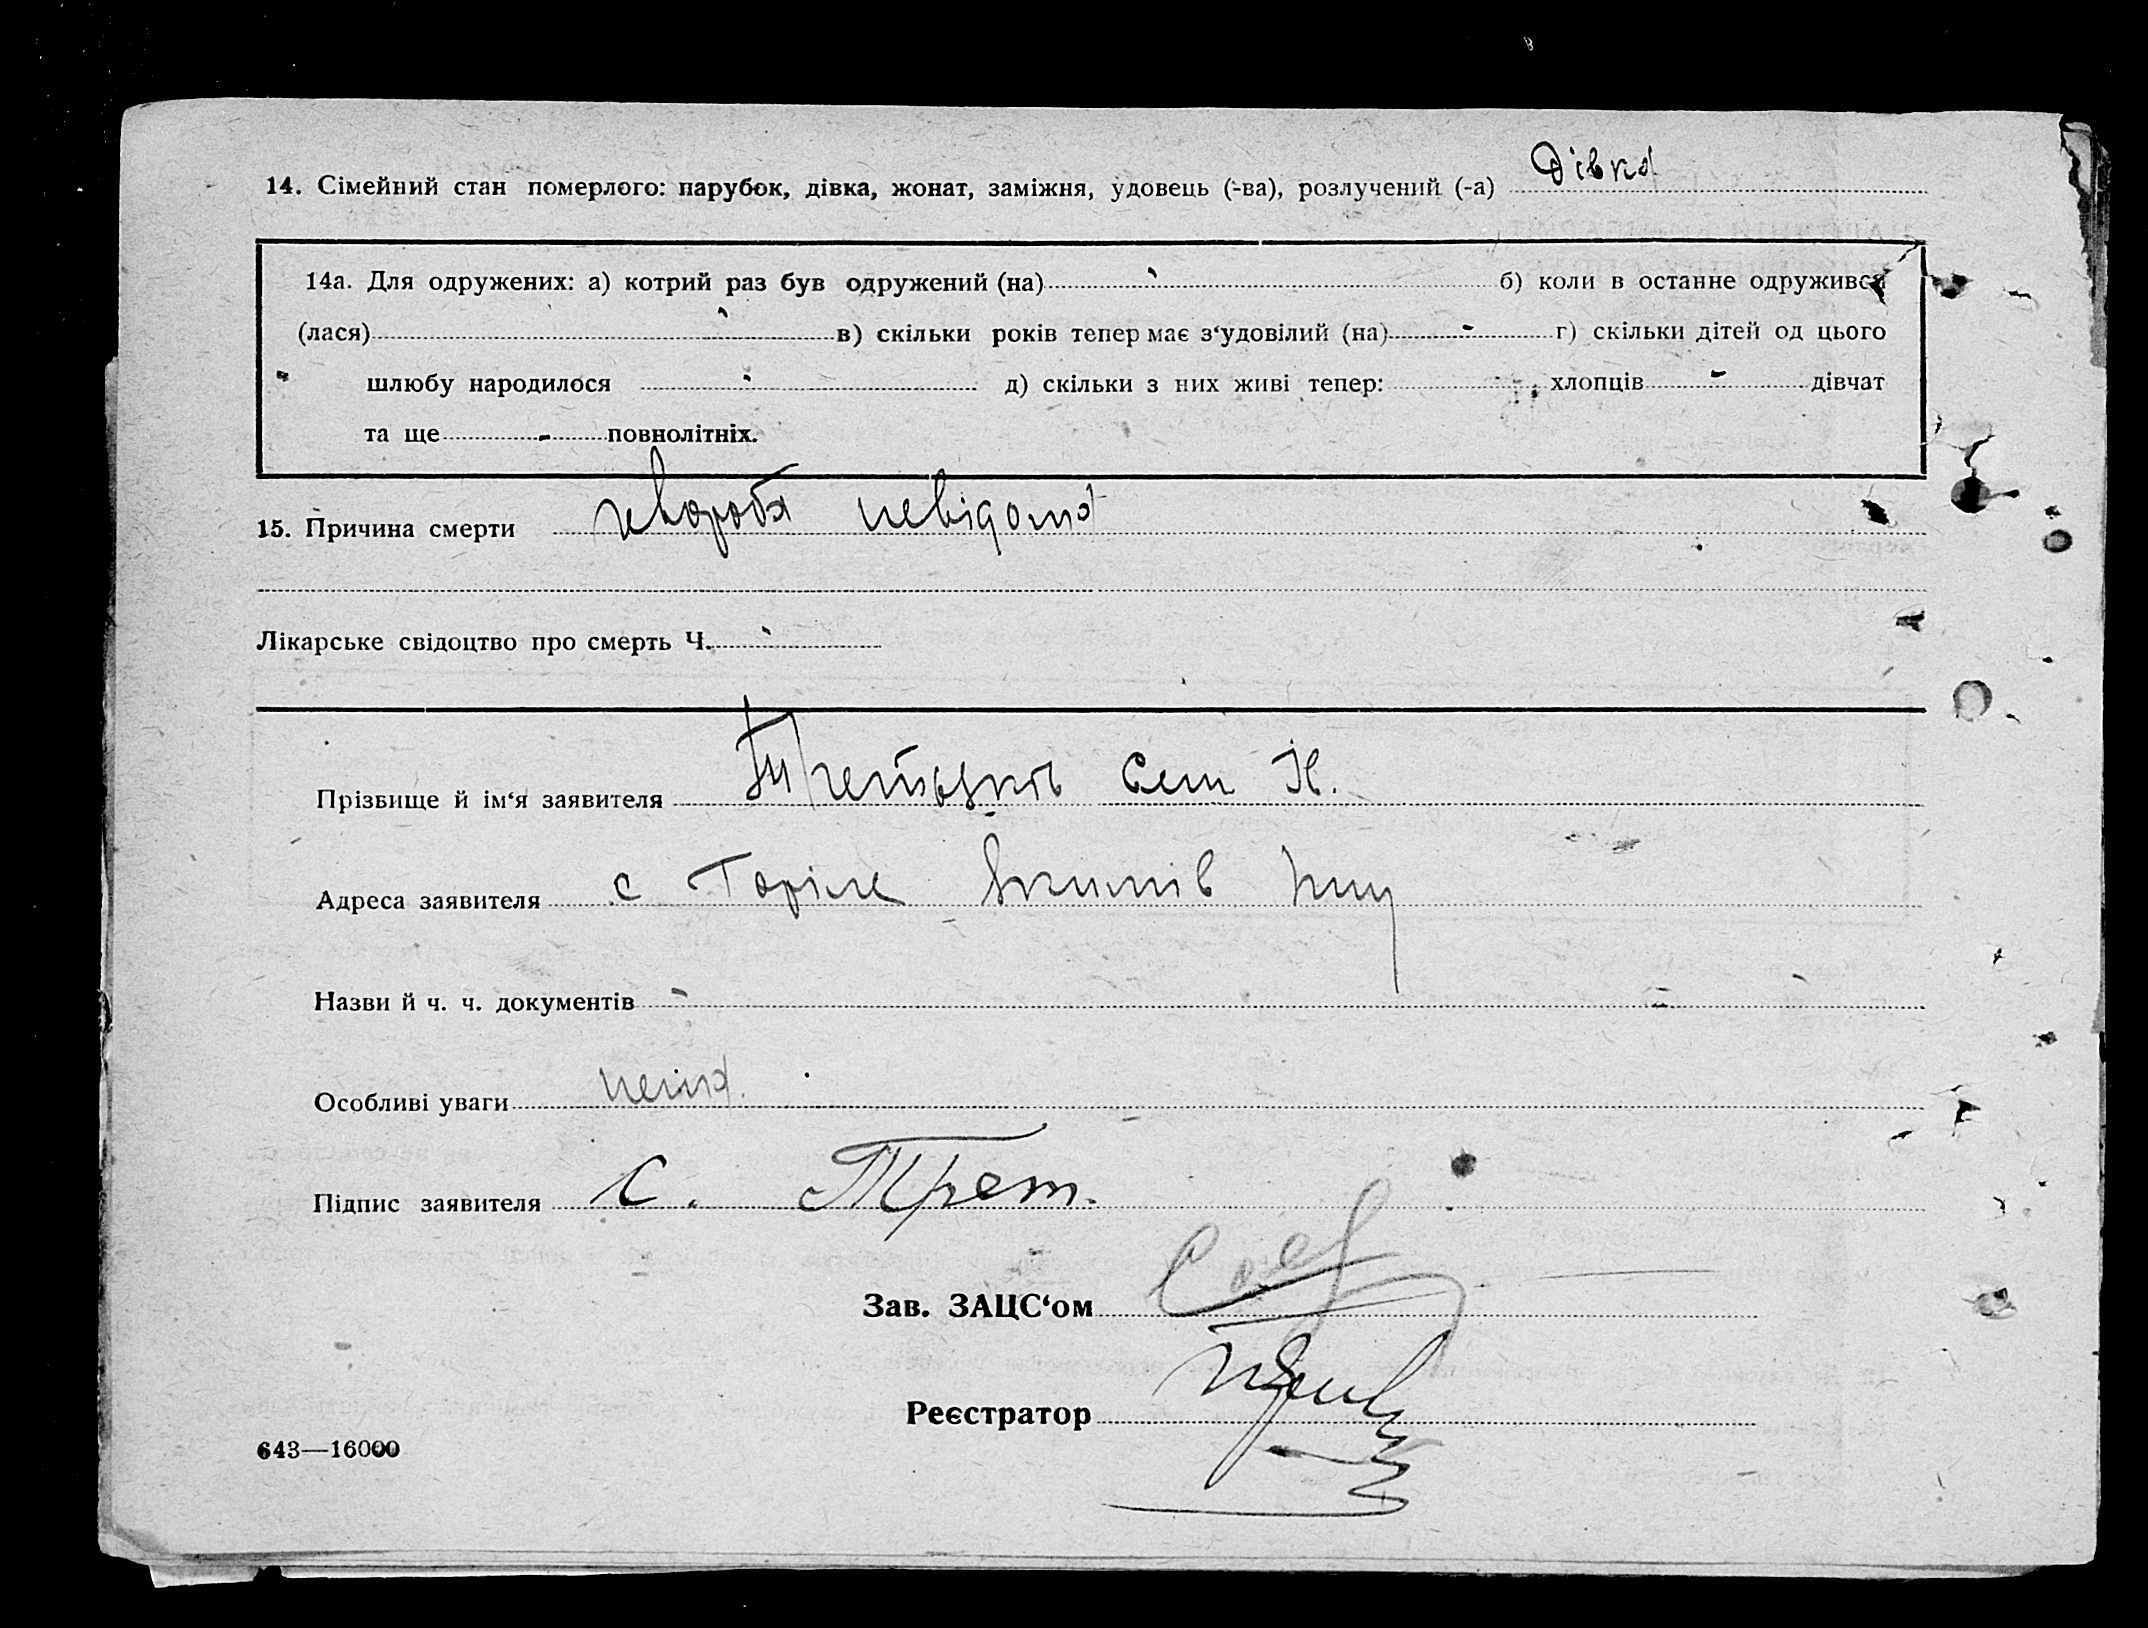 14. Сімейний стан померлого: парубок, дівка, жонат, заміжня, удовець (-ва), розлучений (-а) Дівка
14а. Для одружених: а) котрий раз був одружений (на) - б) коли в останнє одружився
(лася) - в) скільки років тепер має з‘удовілий (на) - г) скільки дітей од цього
шлюбу народилося - д) скільки з них живі тепер: - хлопців - дівчат
та ще - повнолітніх.
15. Причина смерти хвороба невідома
Лікарське свідоцтво про смерть Ч. -
Прізвище й ім‘я заявителя
Адреса заявителя с Горіле
Назви й ч. ч. документів -
Особливі уваги нема.
Підпис заявителя С. Трет.
Зав. ЗАЦС‘ом
Реєстратор
643—16000